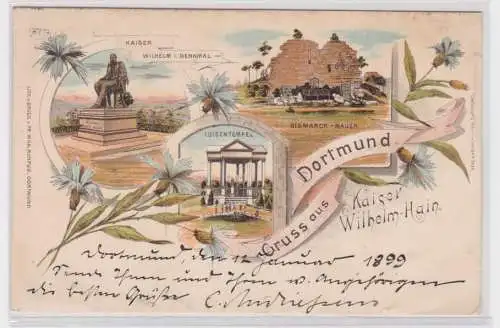 KAISER
WILHELM I. DENKMAL
BISMARCK-MAUER
LUISENTEMPEL
Gruss aus Dortmund
Kaiser
Wilhelm-Hain.
Dortmund, den 12 Januar 1899
Sende Ihnen und Ihren w. Angehörigen
die besten Grüße